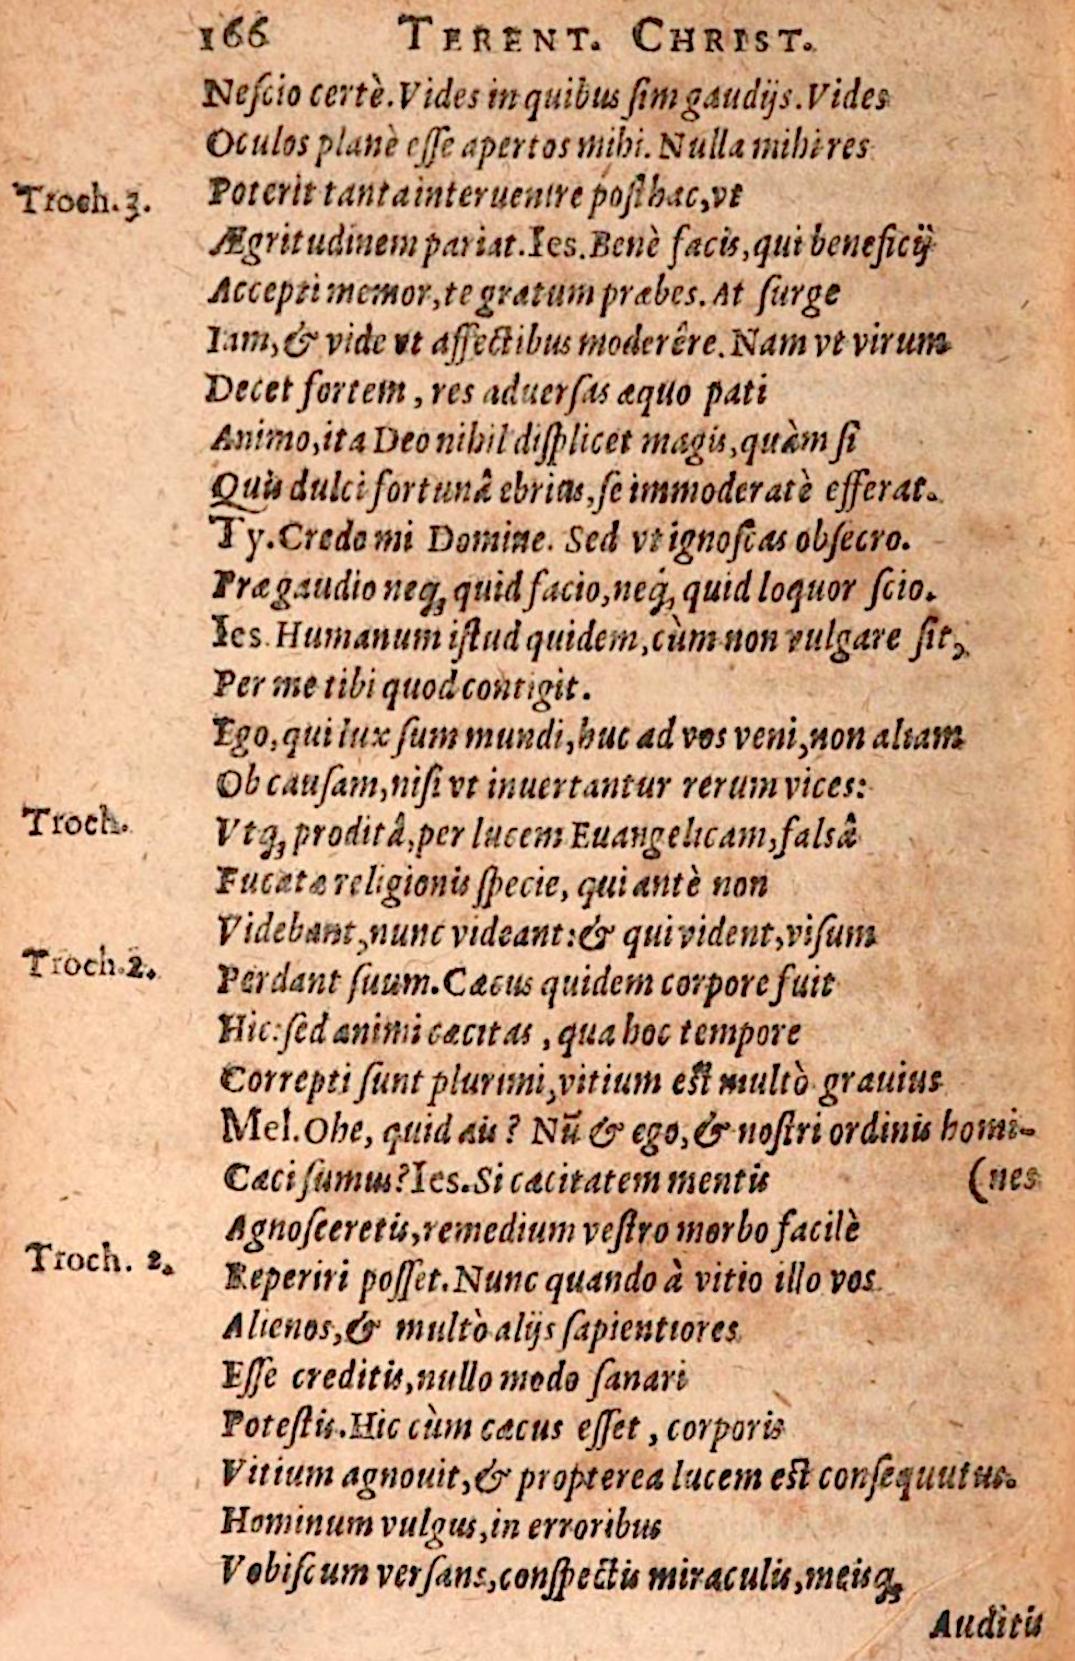 166 TERENT. CHRIST.
Neſcio certè. Vides in quibus ſim gaudijs. Vides
Oculos planè eſſe apertos mihi. Nulla mihi res
Troch. 3.
Poterit tanta interuenire poſthac, vt
Ægritudinem pariat. Ieſ. Benè facis, qui beneficij
Accepti memor, te gratum præbes. At ſurge
Iam, & vide vt affectibus moderêre. Nam vt virum
Decet fortem, res aduerſas æquo pati
Animo, ita Deo nihil diſplicet magis, quàm ſi
Quis dulci fortunâ ebrius, ſe immoderatè efferat.
Ty. Credo mi Domine. Sed vt ignoſcas obſecro.
Præ gaudio neq; quid facio, neq́; quid loquor ſcio.
Ies. Humanum iſtud quidem, cùm non vulgare ſit,
Per me tibi quod contigit.
Ego, qui lux ſum mundi, huc ad vos veni, non aliam
Ob cauſam, niſi vt inuertantur rerum vices:
Troch.
Vtq; proditâ, per lucem Euangelicam, falsâ
Fucatæ religionis ſpecie, qui antè non
Videbant, nunc videant: & qui vident, viſum
Troch. 2.
Perdant ſuum. Cæcus quidem corpore fuit
Hic: ſed animi cæcitas, qua hoc tempore
Correpti ſunt plurimi, vitium eſt multò grauius
Mel. Ohe, quid ais? Nū & ego, & noſtri ordinis homi-
Cæci ſumus? Ies. Si cæcitatem mentis (nes
Agnoſceretis, remedium veſtro morbo facilè
Troch. 2.
Reperiri poſſet. Nunc quando à vitio illo vos
Alienos, & multò alijs ſapientiores
Eſſe creditis, nullo modo ſanari
Poteſtis. Hic cùm cæcus eſſet, corporis
Vitium agnouit, & propterea lucem eſt conſequutus.
Hominum vulgus, in erroribus
Vobiſcum verſans, conſpectis miraculis, meisq;
Auditis